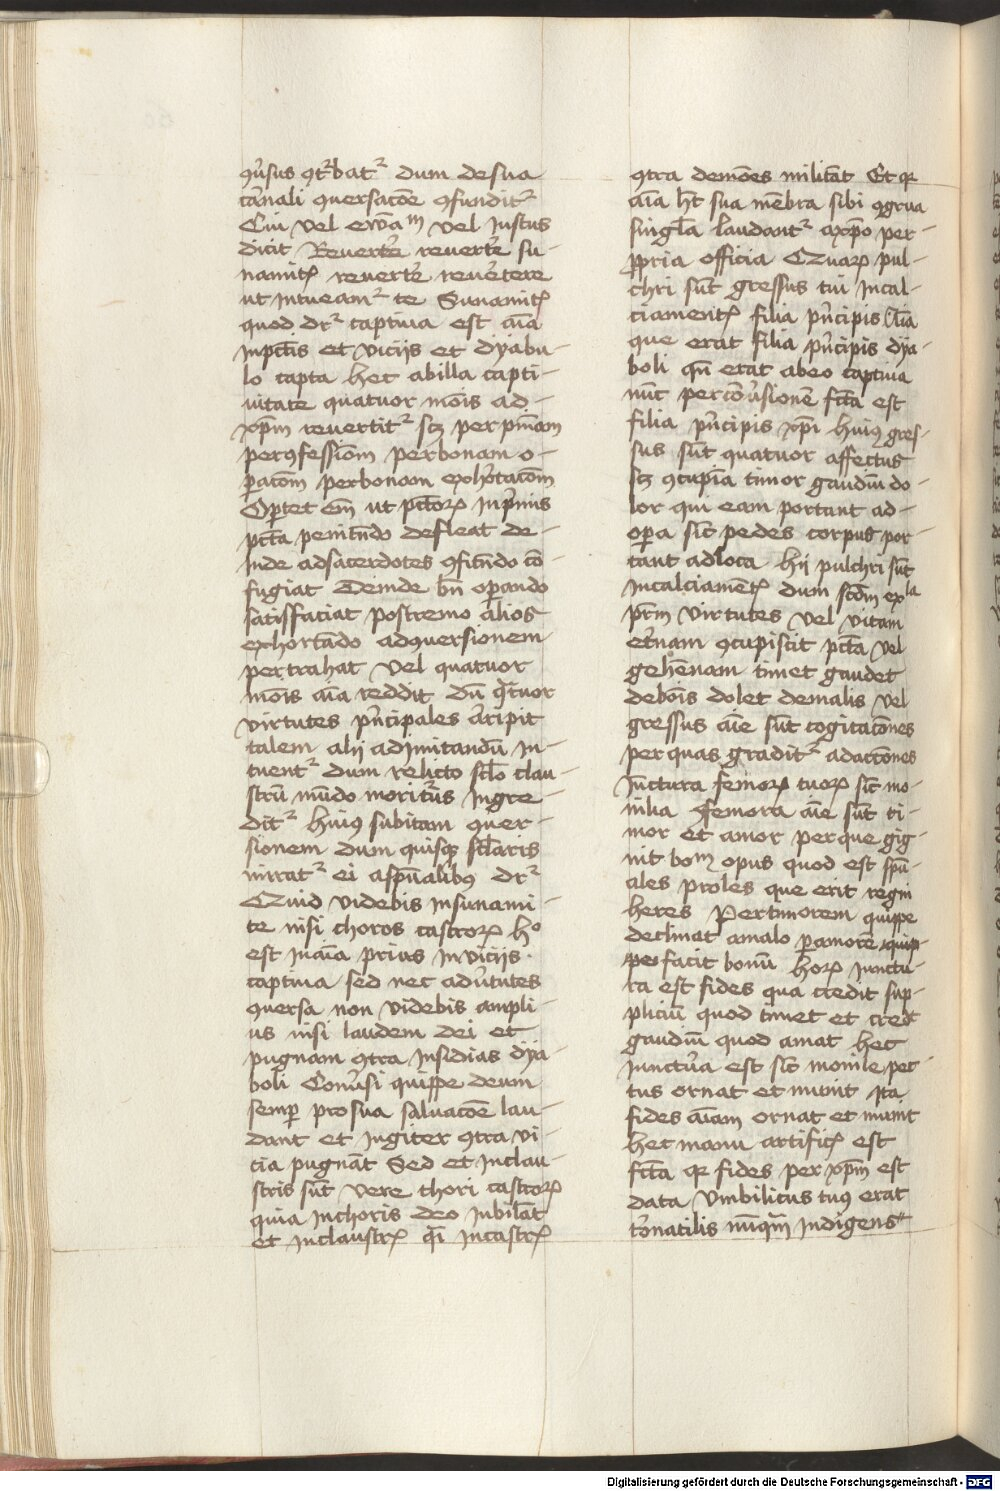 ꝯuͤsus ꝯtͥbatᷣ dum de sua
carnali ꝯuersacōe ꝯfunditᷣ
Cui vel ewāᵐ vel Justus
dicit Reuertẽ reuertẽ su-
namitꝭ reuertẽ reuẽtere
ut intueamᷣ te Sunamitꝭ
quod drᷣ captiua est aīa
in pctīs et viciis et dyabu-
lo capta hec ab illa capti-
uitate quatuor mōis ad-
xp̄m reuertitᷣ scꝫ per pn̄iam
per ꝯfessiōm per bonam o-
ꝑacōm per bonam exhortacōm
Oꝑtet em̄ ut pctōrꝫ in p̄mis
pctā penitēdo defleat de-
inde ad sacerdotes ꝯfitēdo cō-
fugiat Deinde bn̄ oꝑando
satisfaciat postremo alios
exhortādo ad ꝯuersionem
pertrahat vel quatuor
mōis aīa reddit dū qͣtuor
virtutes pͥncipales arripit
talem alij ad imitandū in-
tuentᷣ dum relicto sclō clau-
strū mūdo moriturus ingre-
ditᷣ huiꝰ subitam ꝯuer-
sionem dum quisqꝫ sclāris
miratᷣ ei a spūalibꝰ drᷣ
Quid videbis in sunami-
te nisi choros castrorꝫ hͦ
est in aīa prius in viciis
captiua sed nec ad vͥtutes
ꝯuersa non videbis ampli-
us nisi laudem dei et
pugnam ꝯtra insidias dya-
boli Conuͥsi quippe deum
semꝑ pro sua saluacōe lau-
dant et iugiter ꝯtra vi-
cia pugnāt Sed et in clau-
stris sūt vere chori castrorꝫ
quia in choris deo iubilāt
et in claustrꝭ qͣi in castrꝭ
ꝯtra demōes militāt Et qꝛ
aīa hꝫ sua mēbra sibi ꝯgrua
singlā laudantᷣ a xpō per-
ꝓpria officia Quarꝫ pul-
chri sūt gressus tui in cal-
ciamentꝭ filia pͥncipis Aīa
que erat filia pͥncipis dya-
boli qn̄ erat ab eo captiua
nūc per conuͥsionē fctā est
filia pͥncipis xpī huiꝰ gres-
sus sūt quatuor affectus
scꝫ ꝯcupīa timor gaudiū do-
lor qui eam portant ad-
oꝑa sic̄ pedes corpus por-
tant ad loca hij pulchri sūt
in calciamētꝭ dum scdm exˡᵃ
pr̄m virtutes vel vitam
etͥnam ꝯcupiscit pctā vel
gehēnam timet gaudet
de bōis dolet de malis vel
gressus aīe sūt cogitacōnes
per quas graditᷣ ad actiones
Iūctura femorꝫ tuorꝫ sic̄ mo-
nilia Femora aīe sūt ti-
mor et amor per que gig-
nit boᵐ opus quod est spū-
ales proles que erit regni
heres Per timorem quippe
declinat a malo ꝑ amorē quip-
pe facit bonū horꝫ iunctu-
ra est fides qua credit sup-
pliciū quod timet et credit
gaudiū quod amat hec
iunctura est sic̄ monile pec-
tus ornat et munit Ita
fides aīam ornat et munit
hec manu artificꝭ est
fctā qꝛ fides per xp̄m est
data Vmbilicus tuꝰ erat
tornatilis nūqͣm indigens
Digitalisierung gefördert durch die Deutsche Forschungsgemeinschaft - DFG